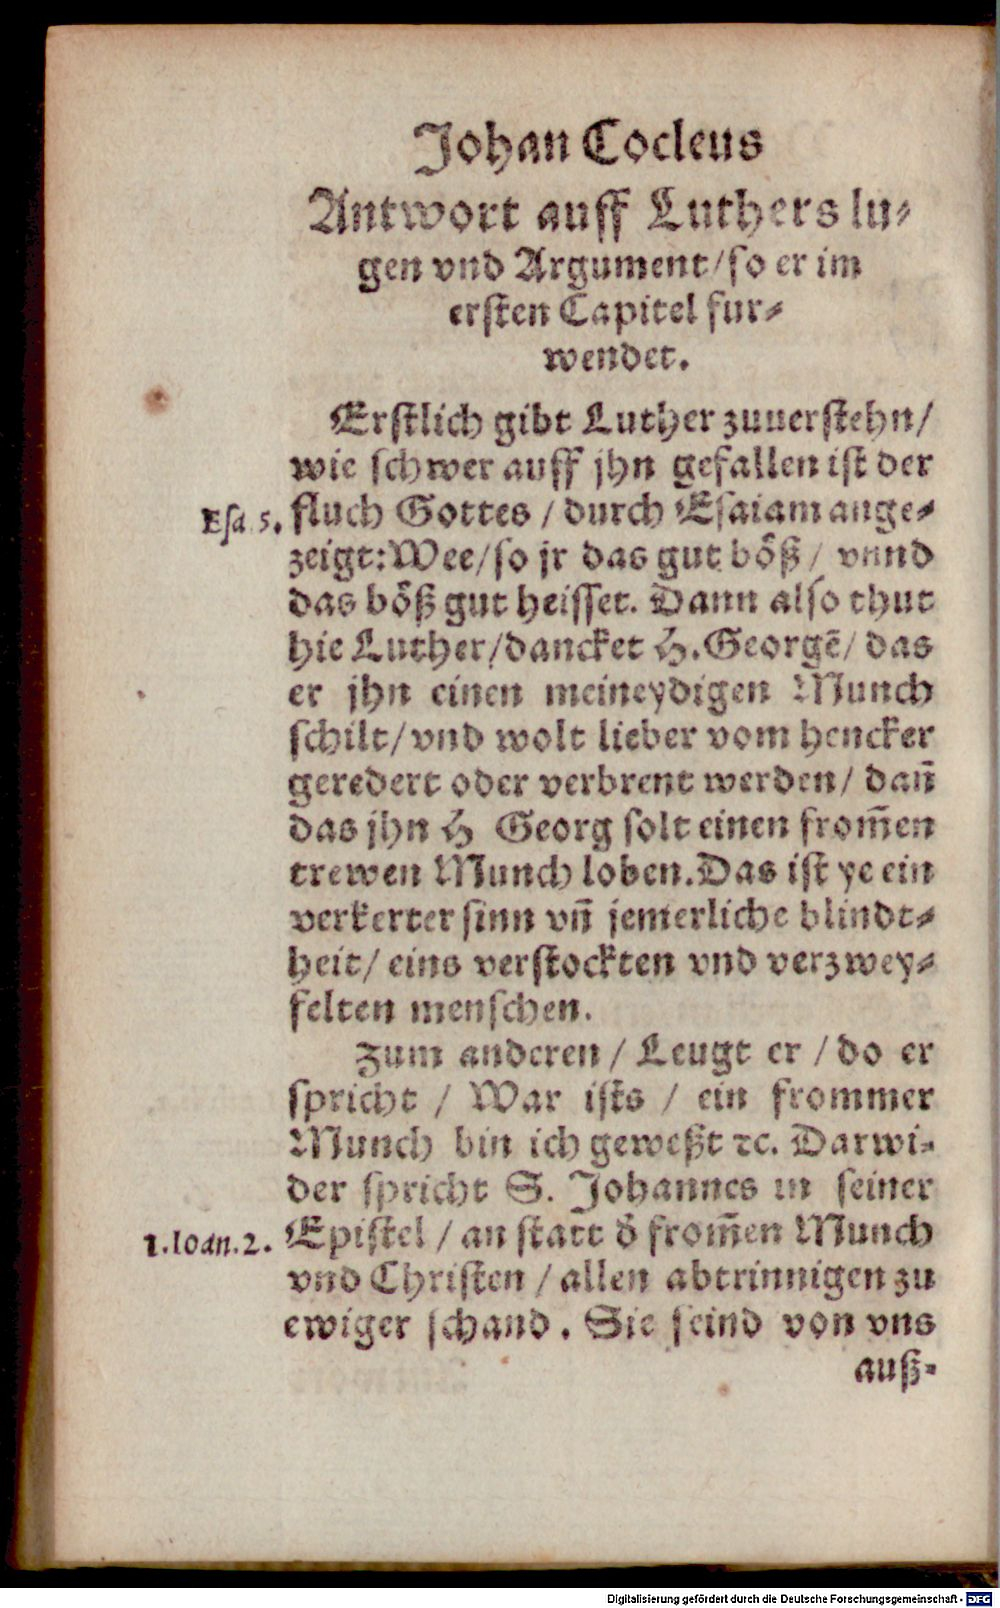 Johan Cocleus
Antwort auff Luthers lu⸗
gen vnd Argument/so er im
ersten Capitel fur⸗
wendet.
Erstlich gibt Luther zuuerstehn/
wie schwer auff jhn gefallen ist der
Esa. 5. fluch Gottes / durch Esaiam ange⸗
zeigt: Wee/so jr das gut böß/ vnnd
das böß gut heisset. Dann also thut
hie Luther/dancket H. Georgē/ das
er jhn einen meineydigen Munch
schilt/vnd wolt lieber vom hencker
geredert oder verbrent werden/ dan̄
das jhn H Georg solt einen from̄en
trewen Munch loben. Das ist ye ein
verkerter sinn vn̄ jemerliche blindt⸗
heit/ eins verstockten vnd verzwey⸗
felten menschen.
Zum anderen / Leugt er / do er
spricht / War ists / ein frommer
Munch bin ich geweßt ꝛc. Darwi⸗
der spricht S. Johannes in seiner
1.Ioan.2. Epistel / an statt d̄ from̄en Munch
vnd Christen / allen abtrinnigen zu
ewiger schand. Sie seind von vns
auß⸗
Digitalisierung gefördert durch die Deutsche Forschungsgemeinschaft - DFG